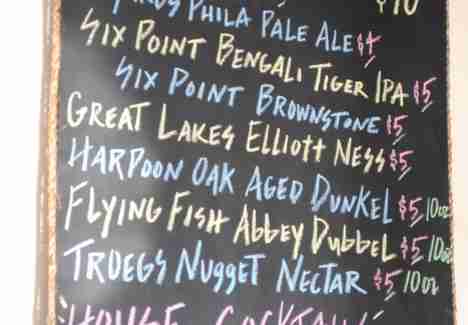 $10
PHILA PALE ALE $4
SIX POINT BENGALI TIGER IPA $5
SIX POINT BROWNSTONE $5
GREAT LAKES ELLIOTT NESS $5
HARPOON OAK AGED DUNKEL $5 10oz
FLYING FISH ABBEY DUBBEL $5 10oz
TROEGS NUGGET NECTAR $5 10oz
HOUSE COCKTAILS